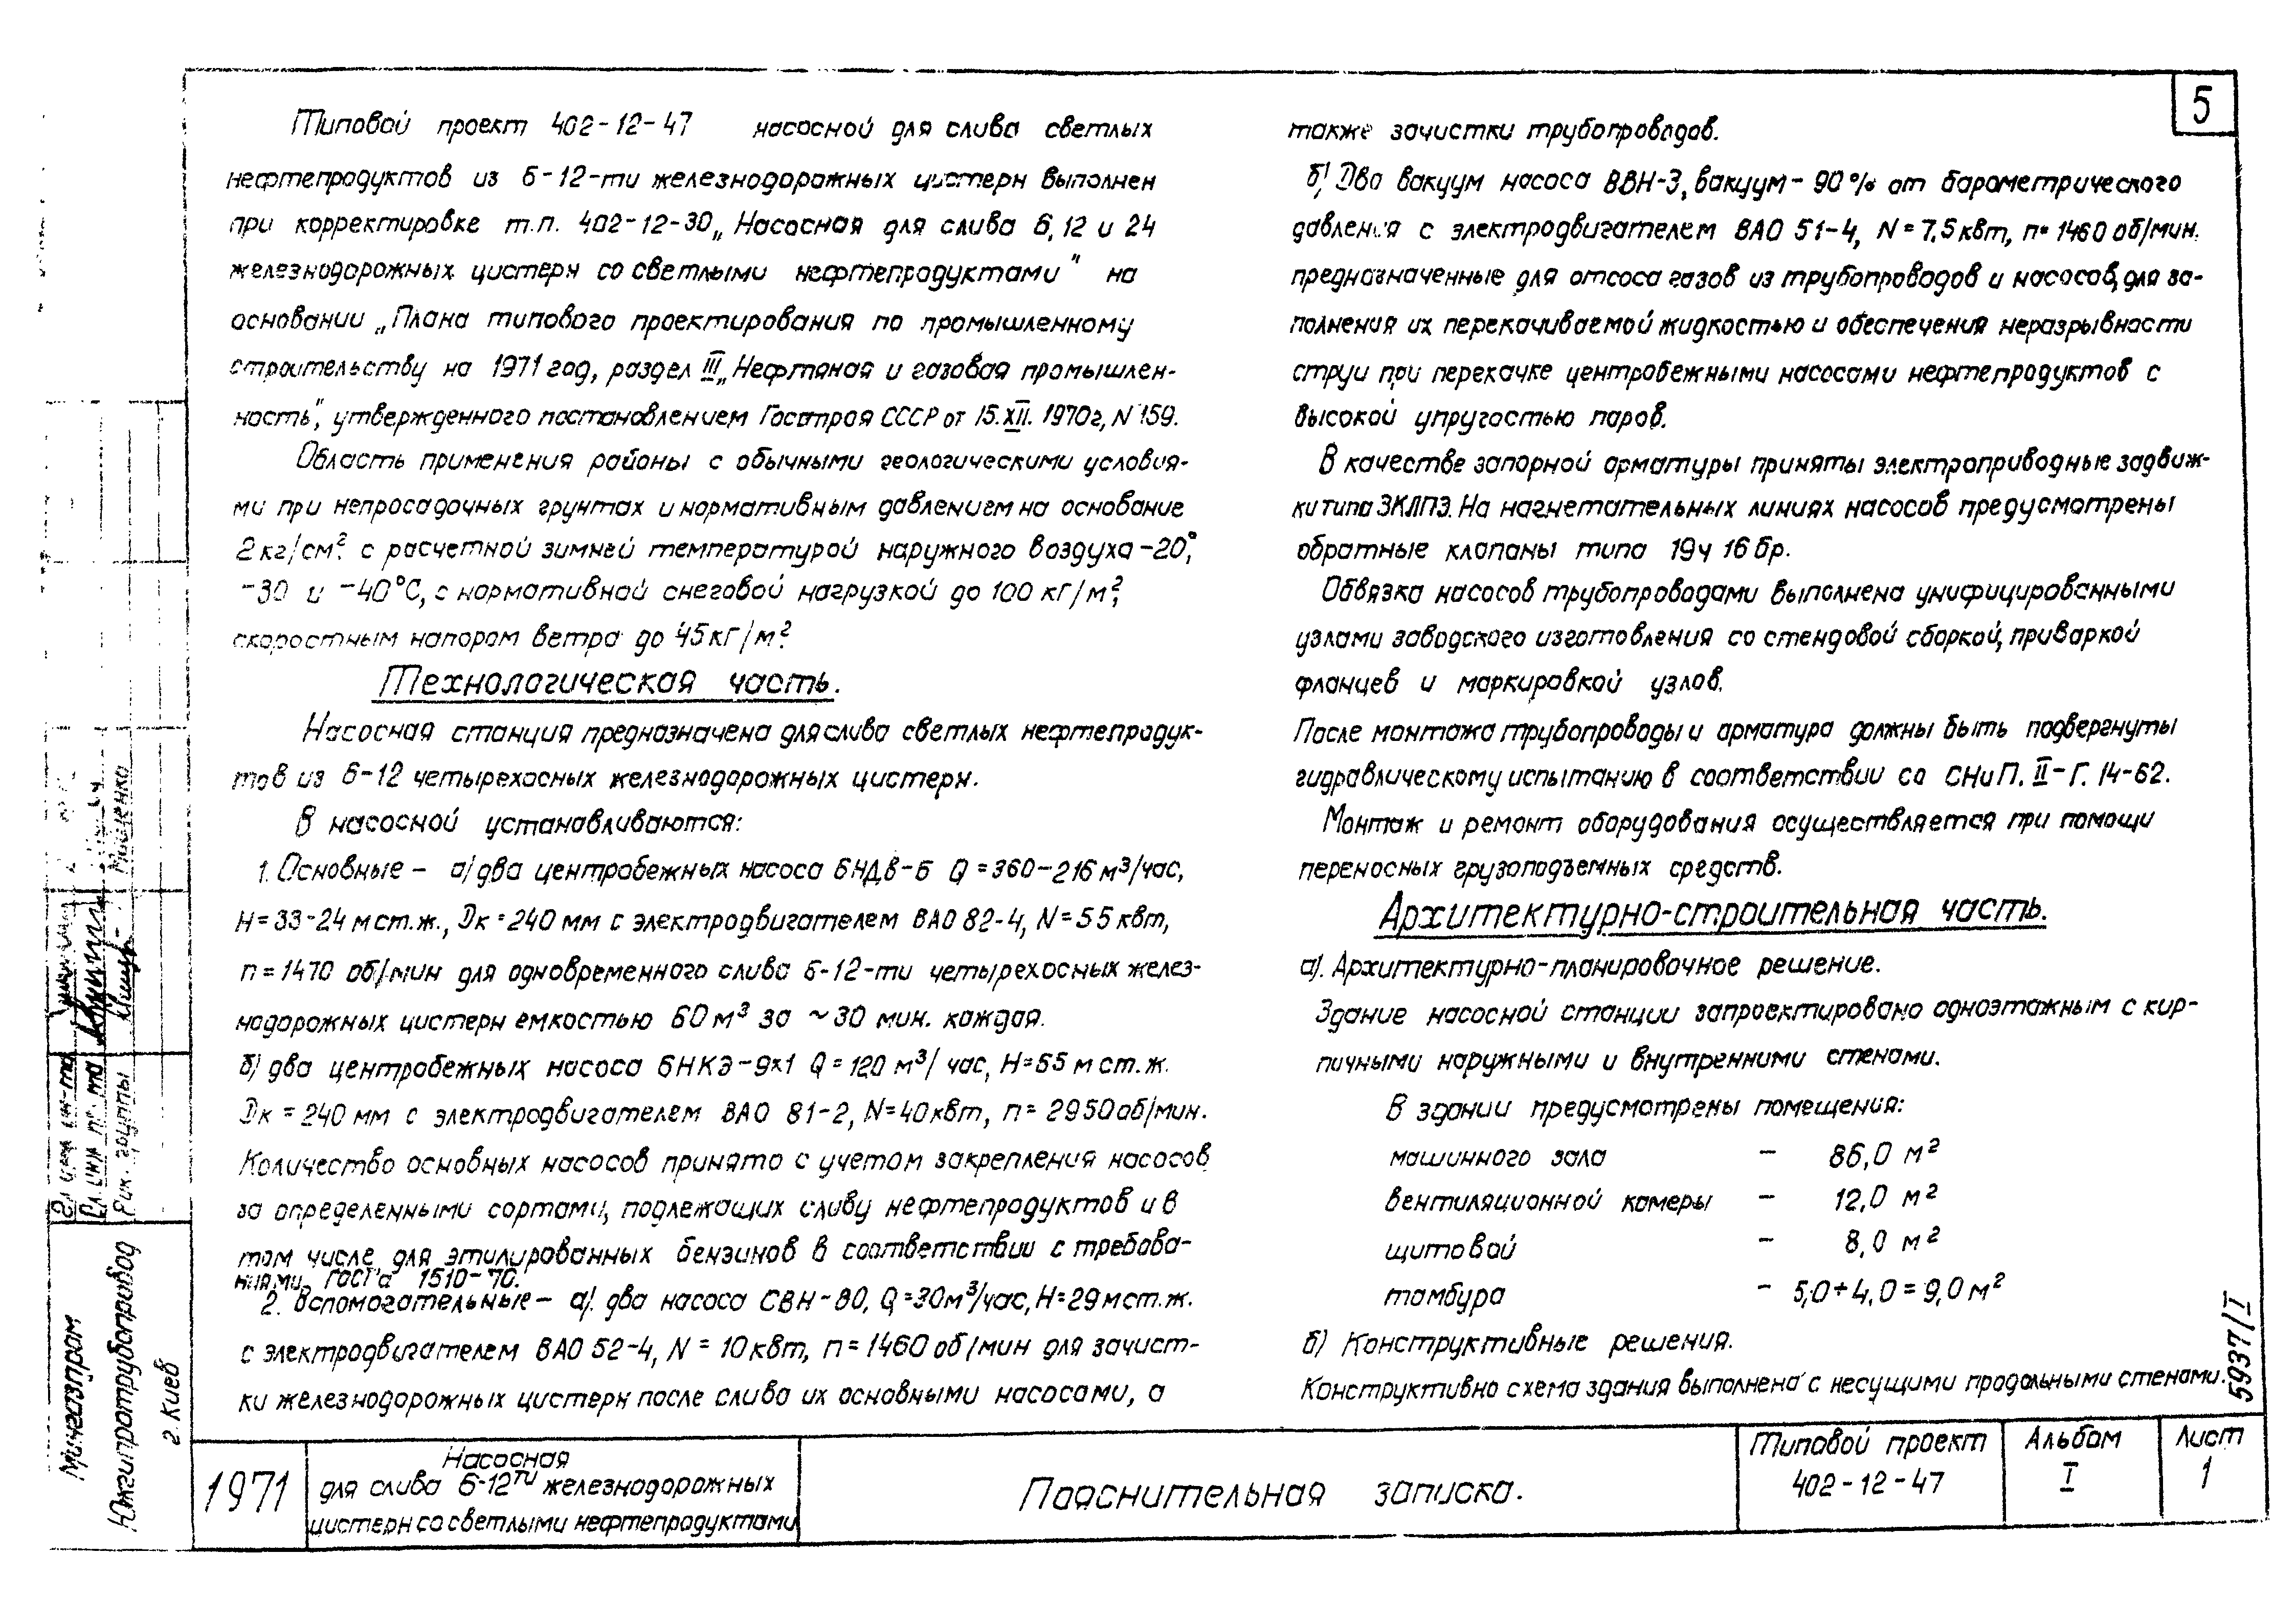 5
Типовой проект 402-12-47 насосной для слива светлых
нефтепродуктов из 6-12-ти железнодорожных цистерн выполнен
при корректировке т.п. 402-12-30 „Насосная для слива 6, 12 и 24
железнодорожных цистерн со светлыми нефтепродуктами" на
основании „Плана типового проектирования по промышленному
строительству на 1971 год, раздел III „Нефтяная и газовая промышлен-
ность", утвержденного постановлением Госстроя СССР от 15.XII. 1970г, N 159.
Область применения районы с обычными геологическими условия-
ми при непросадочных грунтах и нормативным давлением на основание
2 кг/см². с расчетной зимней температурой наружного воздуха -20°,
-30 и -40°С, с нормативной снеговой нагрузкой до 100 кг/м²,
скоростным напором ветра до 45 кг/м²
Технологическая часть.
Насосная станция предназначена для слива светлых нефтепродук-
тов из 6-12 четырехосных железнодорожных цистерн.
В насосной устанавливаются:
1. Основные - а/ два центробежных насоса 6НДв-Б Q = 360-216 м³/час,
Н = 33-24 м ст.ж., Dк = 240 мм с электродвигателем ВАО 82-4, N = 55 квт,
п = 1470 об/мин для одновременного слива 6-12-ти четырехосных желез-
нодорожных цистерн емкостью 60 м³ за ~ 30 мин. каждая.
б) два центробежных насоса 6НКЭ-9х1 Q = 120 м³/час, Н = 65 м ст.ж.
Dк = 240 мм с электродвигателем ВАО 81-2, N = 40 квт, п = 2950 об/мин.
Количество основных насосов принято с учетом закрепления насосов
за определенными сортами, подлежащих сливу нефтепродуктов и в
том числе для этилированных бензинов в соответствии с требова-
ниями ГОСТ'а 1510-70.
2. Вспомогательные - а/. два насоса СВН-80, Q = 30 м³/час, Н = 29 м ст.ж.
с электродвигателем ВАО 52-4, N = 10 квт, п = 1460 об/мин для зачист-
ки железнодорожных цистерн после слива их основными насосами, а
также зачистки трубопроводов.
б/ Два вакуум насоса ВВН-3, вакуум - 90 % от барометрического
давления с электродвигателем ВАО 51-4, N = 7,5 квт, п = 1460 об/мин.
предназначенные для отсоса газов из трубопроводов и насосов, для за-
полнения их перекачиваемой жидкостью и обеспечения неразрывности
струи при перекачке центробежными насосами нефтепродуктов с
высокой упругостью паров.
В качестве запорной арматуры приняты электроприводные задвиж-
ки типа ЗКЛПЭ. На нагнетательных линиях насосов предусмотрены
обратные клапаны типа 19ч 16 бр.
Обвязка насосов трубопроводами выполнена унифицированными
узлами заводского изготовления со стендовой сборкой, приваркой
фланцев и маркировкой узлов.
После монтажа трубопроводы и арматура должны быть подвергнуты
гидравлическому испытанию в соответствии со СНиП. II-Г. 14-62.
Монтаж и ремонт оборудования осуществляется при помощи
переносных грузоподъемных средств.
Архитектурно-строительная часть.
а). Архитектурно-планировочное решение.
Здание насосной станции запроектировано одноэтажным с кир-
пичными наружными и внутренними стенами.
В здании предусмотрены помещения:
машинного зала - 86,0 м²
вентиляционной камеры - 12,0 м²
щитовой - 8,0 м²
тамбура - 5,0 + 4,0 = 9,0 м²
б) Конструктивные решения.
Конструктивно схема здания выполнена с несущими продольными стенами.
5937/I
Рук. группы
Мищенко
Мингазпром
Южгипротрубопровод
г. Киев
1971
Насосная
для слива 6-12ти железнодорожных
цистерн со светлыми нефтепродуктами
Пояснительная записка.
Типовой проект
402-12-47
Альбом
I
Лист
1